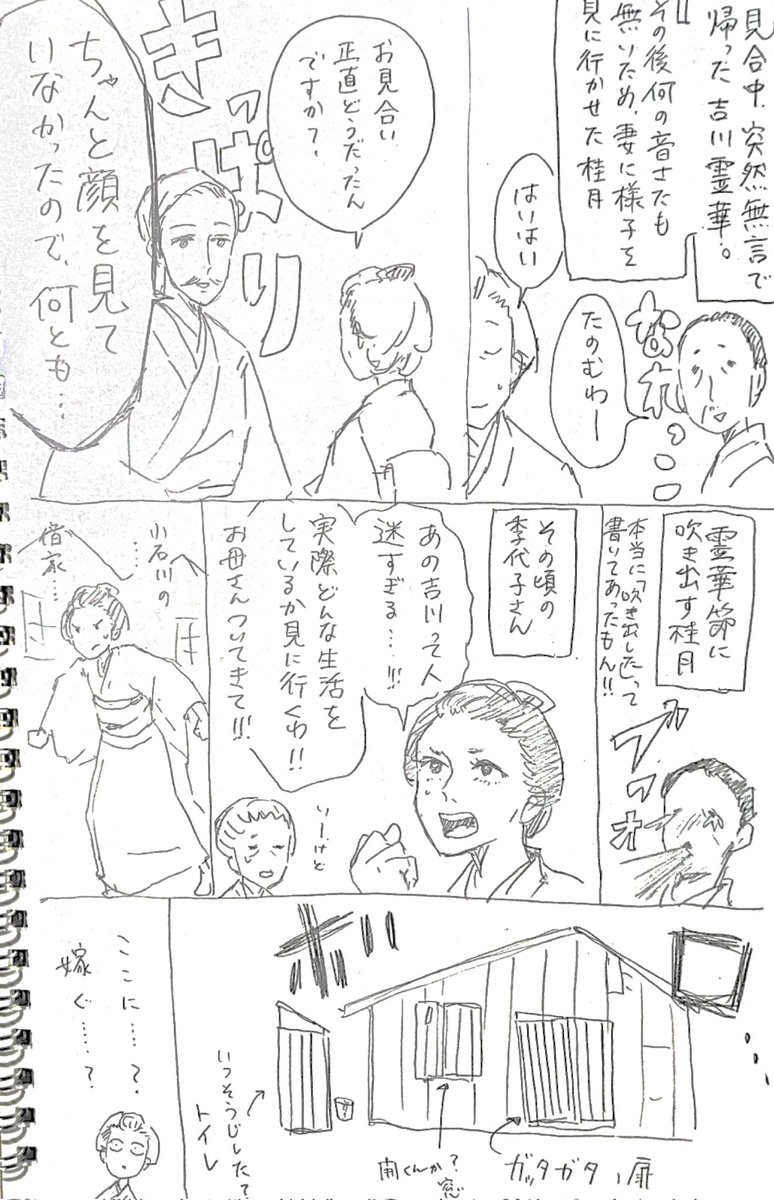 見合中、突然無言で
帰った吉川霊華。
その後何の音さたも
無いため、妻に様子を
見に行かせた桂月
なれっこ
たのむわー
はいはい
お見合い
正直どうだったん
ですか？
きっぱり
ちゃんと顔を見て
いなかったので、何とも…
霊華節に
吹き出す桂月
本当に「吹き出した」って
書いてあったもん!!
ブフォ
その頃の
季代子さん
あの吉川って人
迷すぎる…!!!
実際どんな生活を
しているか見に行くわ!!
お母さんついてきて!!!
いーけど
小石川の
……
借家…
ボロ…
ガッタガタ、扉
開くんか？
窓
いつそうじしたて
トイレ
ここに……？
嫁ぐ……？